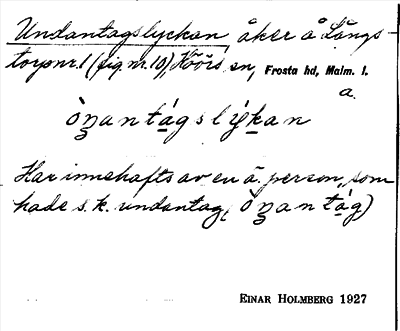 Undantagslyckan, åker å Långs-
torp nr. 1 (fig. nr. 10), Höörs sn, Frosta hd, Malm. l.
a.
òʒantágslýkan
Har innehafts av en ä. person, som
hade s. k. undantag, (òʒantág)
EINAR HOLMBERG 1927